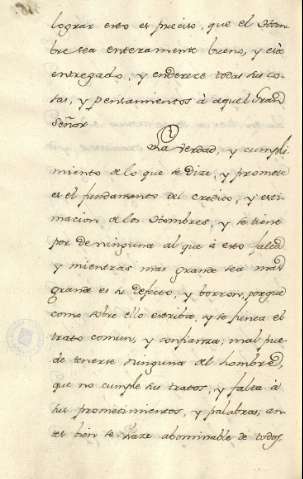 lograr esto es preciso, que el Hom-
bre sea enteramente bueno, y esté
entregado, y enderece todas sus co-
sas, y pensamientos à aquel Grand
Señor
La verdad, y cumpli
miento de lo que se dize, y promete
es el fundamento del credito, y esti-
macion de los Hombres, y se tiene
por de ninguna al que à esto falta
y mientras mas grande sea mas
grande es su defecto, y borron, porque
como sobre ello estriba, y se funda el
trato comun, y confianza, mal pue-
de tenerse ninguna del hombre,
que no cumple sus tratos, y falta à
sus prometimientos, y palabras, an-
tes bien se haze abominable de todos